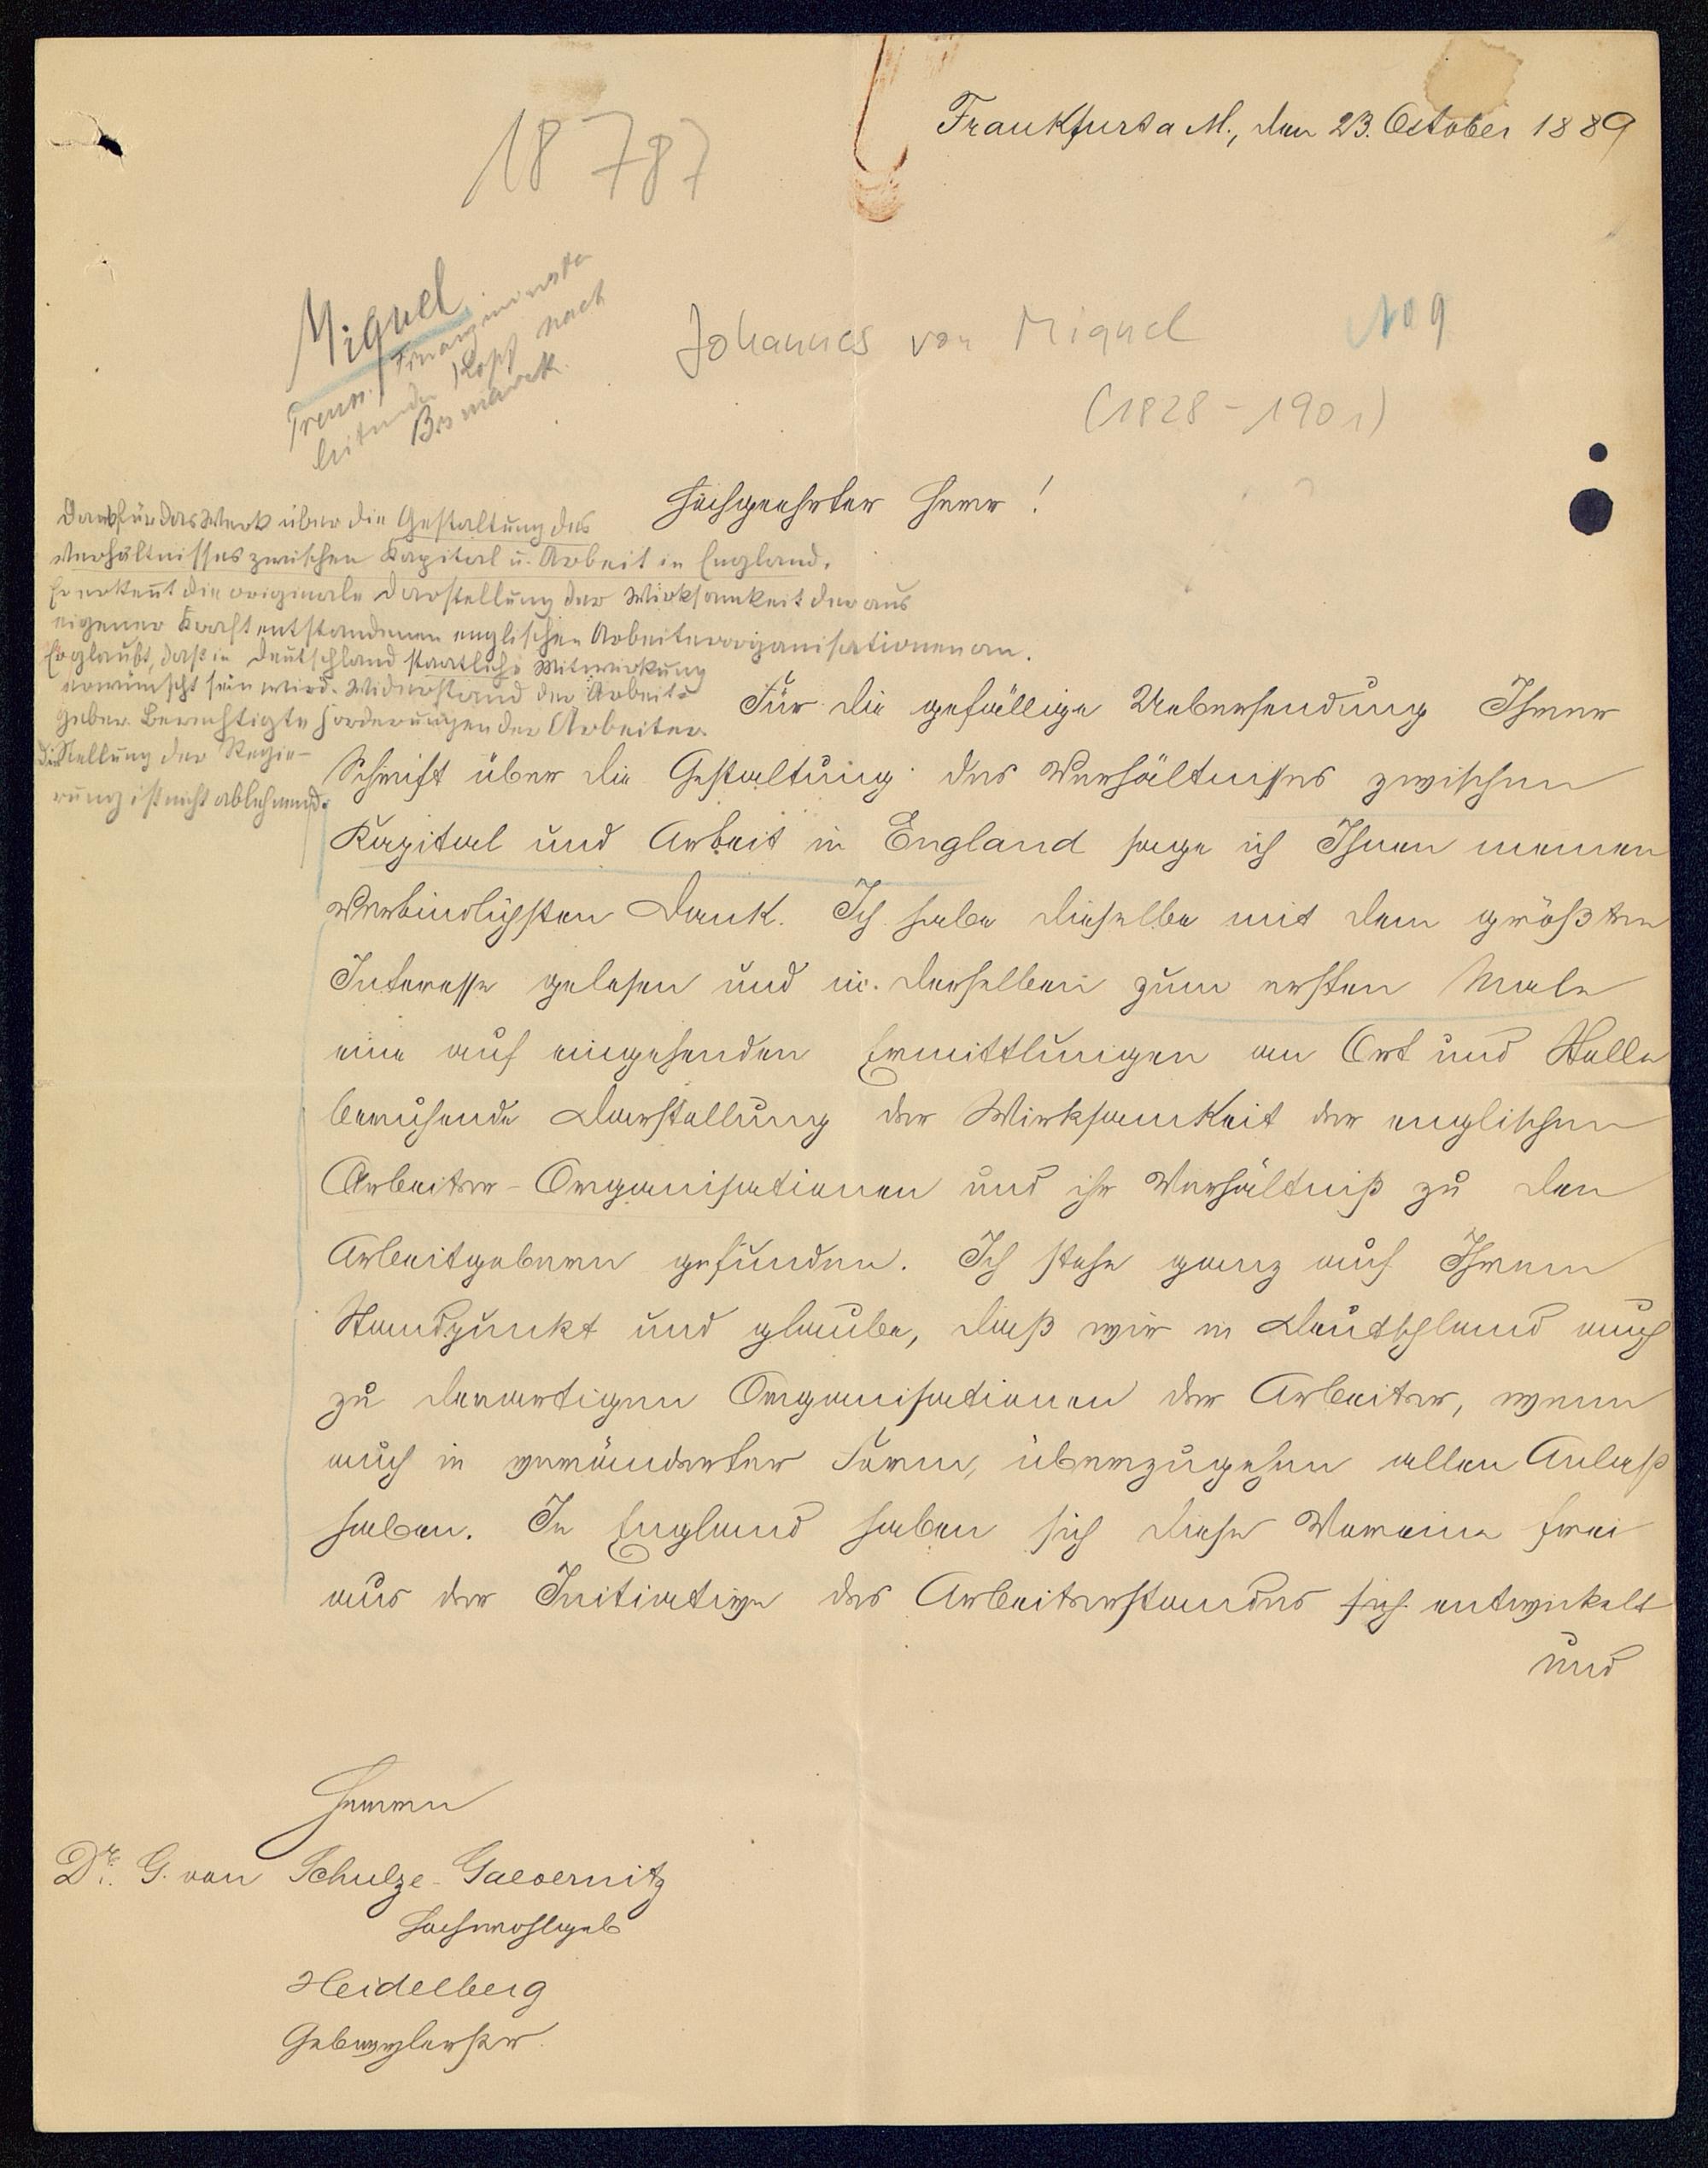 Frankfurt a M., den 23. October 1889
18787
Miquel
Preuss. Finanzminister
leitender Kopf nach
Bismarck.
Johannes von Miquel
No 9
(1828-1901)
Hochgeehrter Herr!
Dank für das Werk über die Gestaltung des
Verhältnisses zwischen Kapital u. Arbeit in England.
Er erkennt die originale Darstellung der Wirksamkeit der aus
eigener Kraft entstandenen englischen Arbeiterorganisationen an.
Er glaubt, daß in Deutschland staatliche Mitwirkung
erwünscht sein wird. Widerstand der Arbeit-
geber. Berechtigte Forderungen der Arbeiter.
Die Stellung der Regie-
rung ist nicht ablehnend.
Für die gefällige Uebersendung Ihrer
Schrift über die Gestaltung des Verhältnisses zwischen
Kapital und Arbeit in England sage ich Ihnen meinen
verbindlichsten Dank. Ich habe dieselbe mit dem größten
Interesse gelesen und in derselben zum ersten Male
eine auf eingehenden Ermittlungen an Ort und Stelle
beruhende Darstellung der Wirksamkeit der englischen
Arbeiter-Organisationen und ihr Verhältniß zu den
Arbeitgebern gefunden. Ich stehe ganz auf Ihrem
Standpunkt und glaube, daß wir in Deutschland auch
zu derartigen Organisationen der Arbeiter, wenn
auch in veränderter Form, überzugehen allen Anlaß
haben. In England haben sich diese Vereine frei
aus der Initiative des Arbeiterstandes sich entwickelt
und
Herrn
Dr. G. von Schulze-Gaevernitz
Hochwohlgeb
Heidelberg